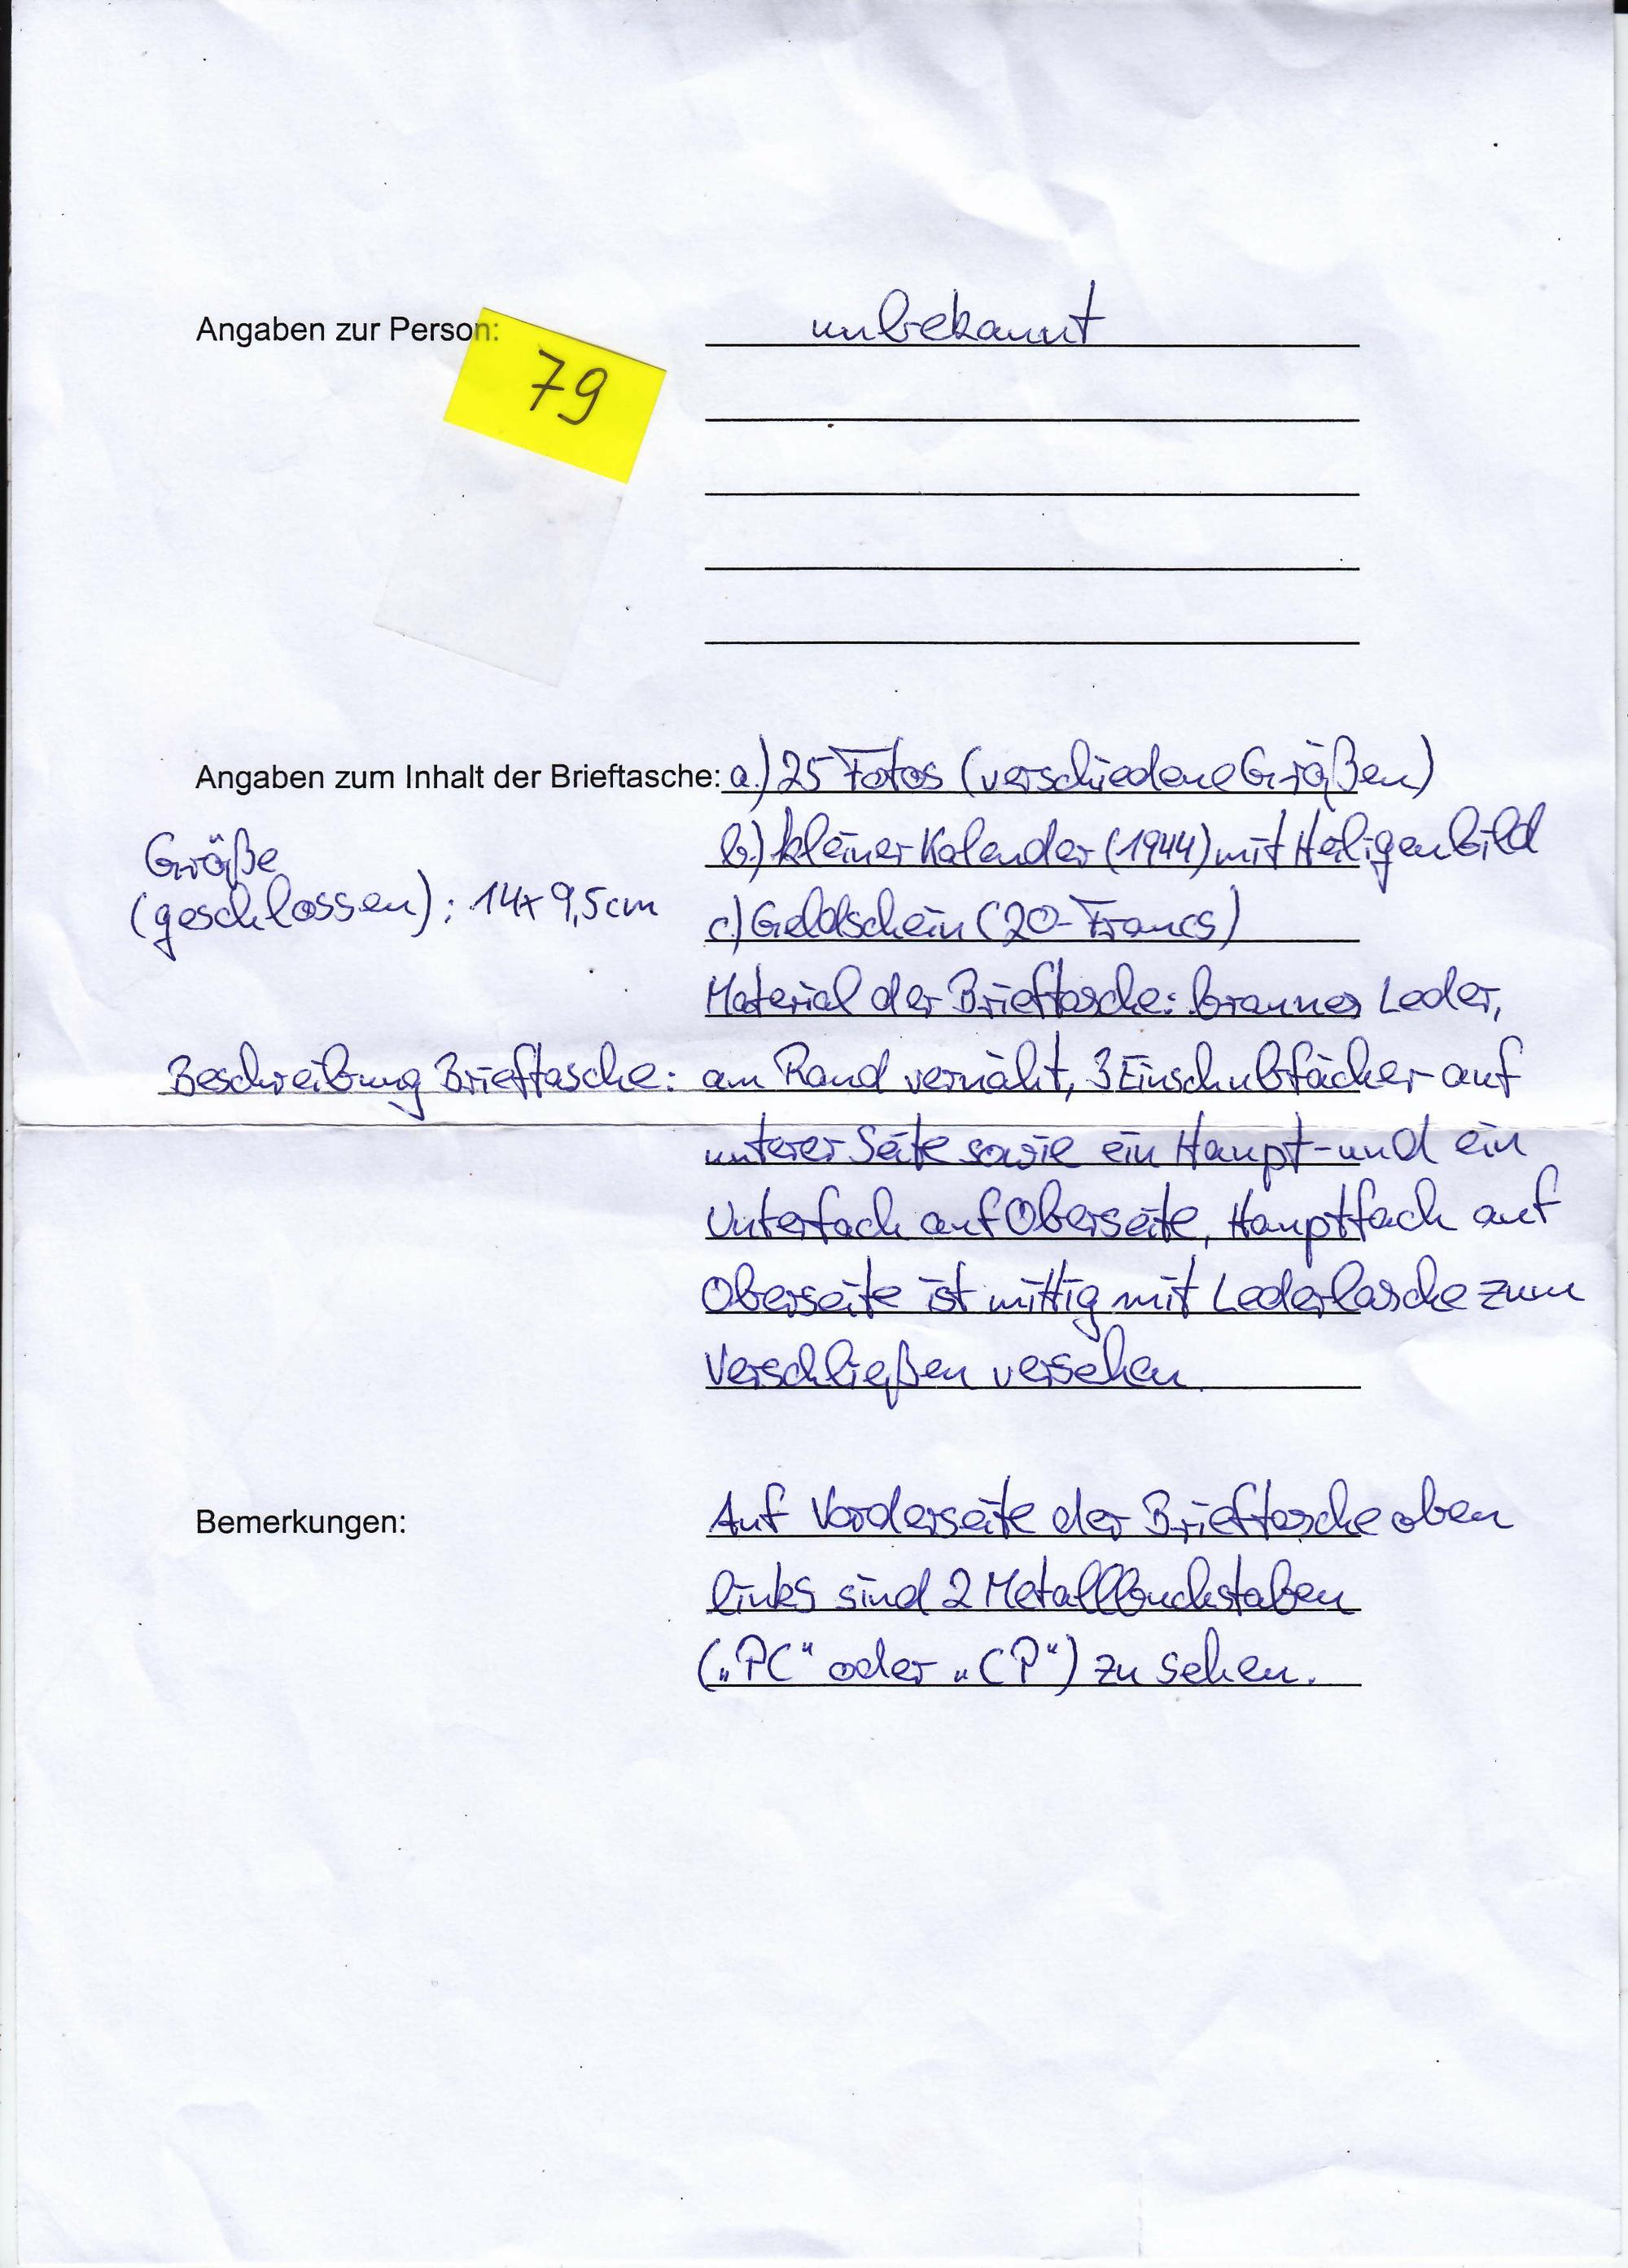 Angaben zur Person: unbekannt
79
Angaben zum Inhalt der Brieftasche: a.) 25 Fotos (verschiedene Größen)
b.) kleiner Kalender (1944) mit Heiligenbild
Größe
(geschlossen): 14x9,5cm
c.) Geldschein (20-Francs)
Material der Brieftasche: braunes Leder,
Beschreibung Brieftasche: am Rand vernäht, 3 Einschubfächer auf
unterer Seite sowie ein Haupt- und ein
Unterfach auf Oberseite, Hauptfach auf
Oberseite ist mittig mit Lederlasche zum
Verschließen versehen.
Bemerkungen: Auf Vorderseite der Brieftasche oben
links sind 2 Metallbuchstaben
(„PC“ oder „CP“) zu sehen.